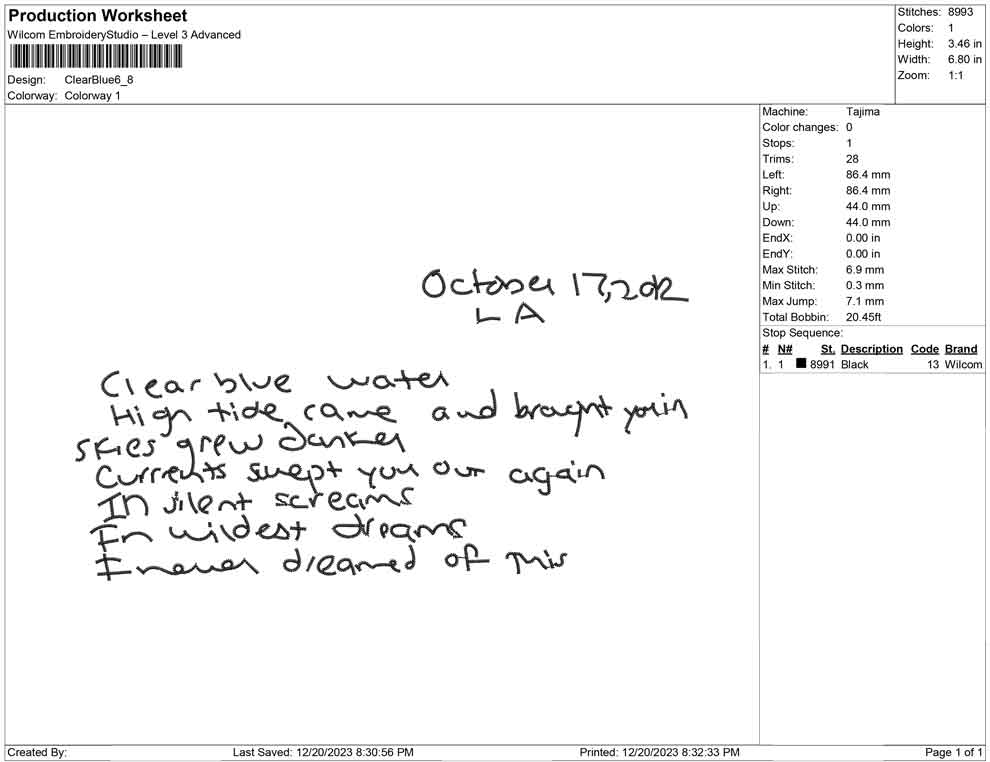 Production Worksheet
Wilcom EmbroideryStudio – Level 3 Advanced
Design: ClearBlue6_8
Colorway: Colorway 1
Stitches: 8993
Colors: 1
Height: 3.46 in
Width: 6.80 in
Zoom: 1:1
Machine: Tajima
Color changes: 0
Stops: 1
Trims: 28
Left: 86.4 mm
Right: 86.4 mm
Up: 44.0 mm
Down: 44.0 mm
EndX: 0.00 in
EndY: 0.00 in
Max Stitch: 6.9 mm
Min Stitch: 0.3 mm
Max Jump: 7.1 mm
Total Bobbin: 20.45ft
Stop Sequence:
# N# St. Description Code Brand
1. 1 8991 Black 13 Wilcom
October 17, 2012
LA
Clear blue water
High tide came and brought you in
Skies grew darker
Currents swept you out again
In silent screams
In wildest dreams
I never dreamed of this
Created By:
Last Saved: 12/20/2023 8:30:56 PM
Printed: 12/20/2023 8:32:33 PM
Page 1 of 1